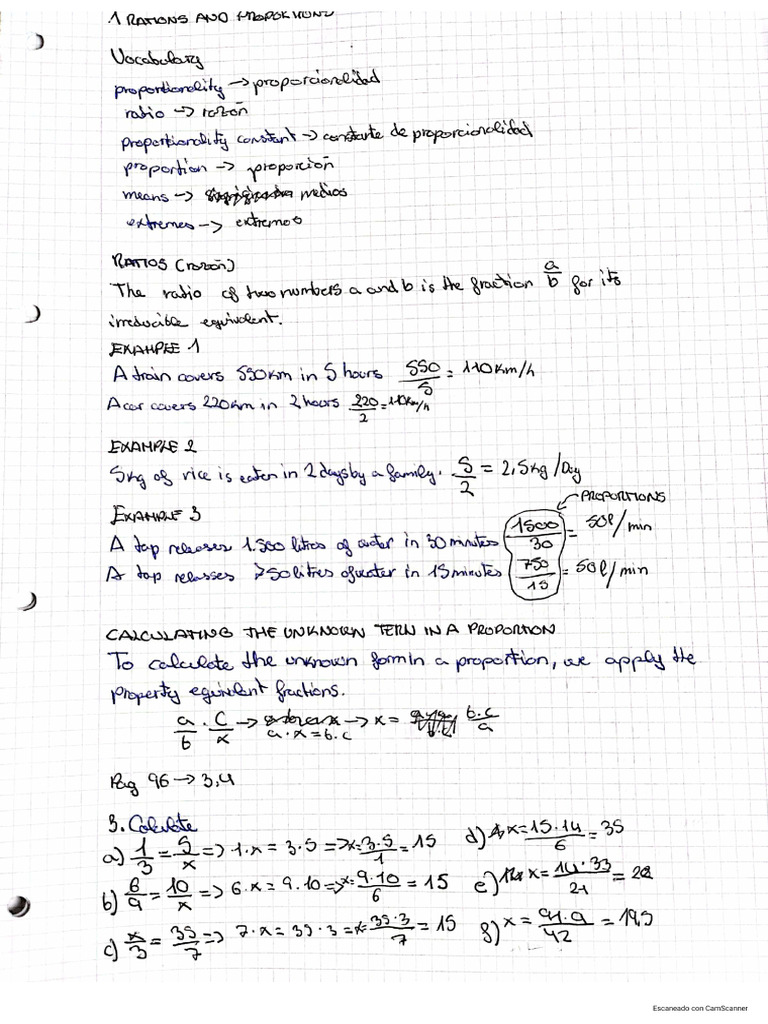 1 RATIONS AND PROPORTIONS
Vocabulary
proportionality → proporcionalidad
ratio → razón
proportionality constant → constante de proporcionalidad
proportion → proporción
means → medios
extremes → extremos
RATIOS (razón)
The ratio of two numbers a and b is the fraction a/b for its
irreducible equivalent.
EXAMPLE 1
A train covers 550km in 5 hours 550/5 = 110km/h
A car covers 220km in 2 hours 220/2 = 110km/h
EXAMPLE 2
5kg of rice is eaten in 2 days by a family. 5/2 = 2,5kg/Day
← PROPORTIONS
EXAMPLE 3
A tap releases 1.500 litres of water in 30 minutes 1500/30 = 50l/min
A tap relasses 750 litres of water in 15 minutes 750/15 = 50l/min
CALCULATING THE UNKNOWN TERN IN A PROPORTION
To calculate the unknown form in a proportion, we apply the
property equivalent fractions.
a/b · c/x → a·x = b·c → x = b·c/a
Pag 96 → 3,4
3. Calculate
a) 1/3 = 5/x => 1·x = 3·5 => x = 3·5/1 = 15 d) x = 15·14/6 = 35
b) 6/9 = 10/x => 6·x = 9·10 => x = 9·10/6 = 15 e) x = 14·33/21 = 22
c) x/3 = 35/7 => 7·x = 35·3 = x = 35·3/7 = 15 f) x = 91·9/42 = 19,5
Escaneado con CamScanner